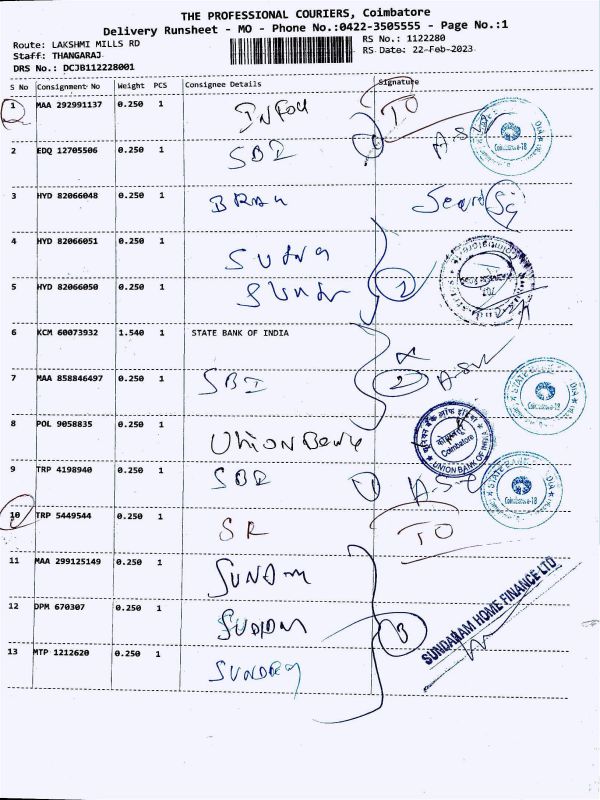 THE PROFESSIONAL COURIERS, Coimbatore
Delivery Runsheet - MO - Phone No.:0422-3505555 - Page No.:1
Route: LAKSHMI MILLS RD
Staff: THANGARAJ
DRS No.: DCJB112228001
RS No.: 1122280
RS Date: 22-Feb-2023
S No Consignment No Weight PCS Consignee Details Signature
1 MAA 292991137 0.250 1 TO
2 EDQ 12705506 0.250 1 SBI 1
Coimbatore-18
3 HYD 82066048 0.250 1
4 HYD 82066051 0.250 1
5 HYD 82066050 0.250 1 2
6 KCM 60073932 1.540 1 STATE BANK OF INDIA
7 MAA 858846497 0.250 1 SBI 2
STATE BANK
Coimbatore-18
8 POL 9058835 0.250 1 Union Bank
यूनियन बैंक ऑफ इंडिया
Coimbatore
UNION BANK OF INDIA
9 TRP 4198940 0.250 1 SBI 1
STATE BANK
Coimbatore-18
10 TRP 5449544 0.250 1 SR TO
11 MAA 299125149 0.250 1
12 DPM 670307 0.250 1 3
13 MTP 1212620 0.250 1
SUNDARAM HOME FINANCE LTD